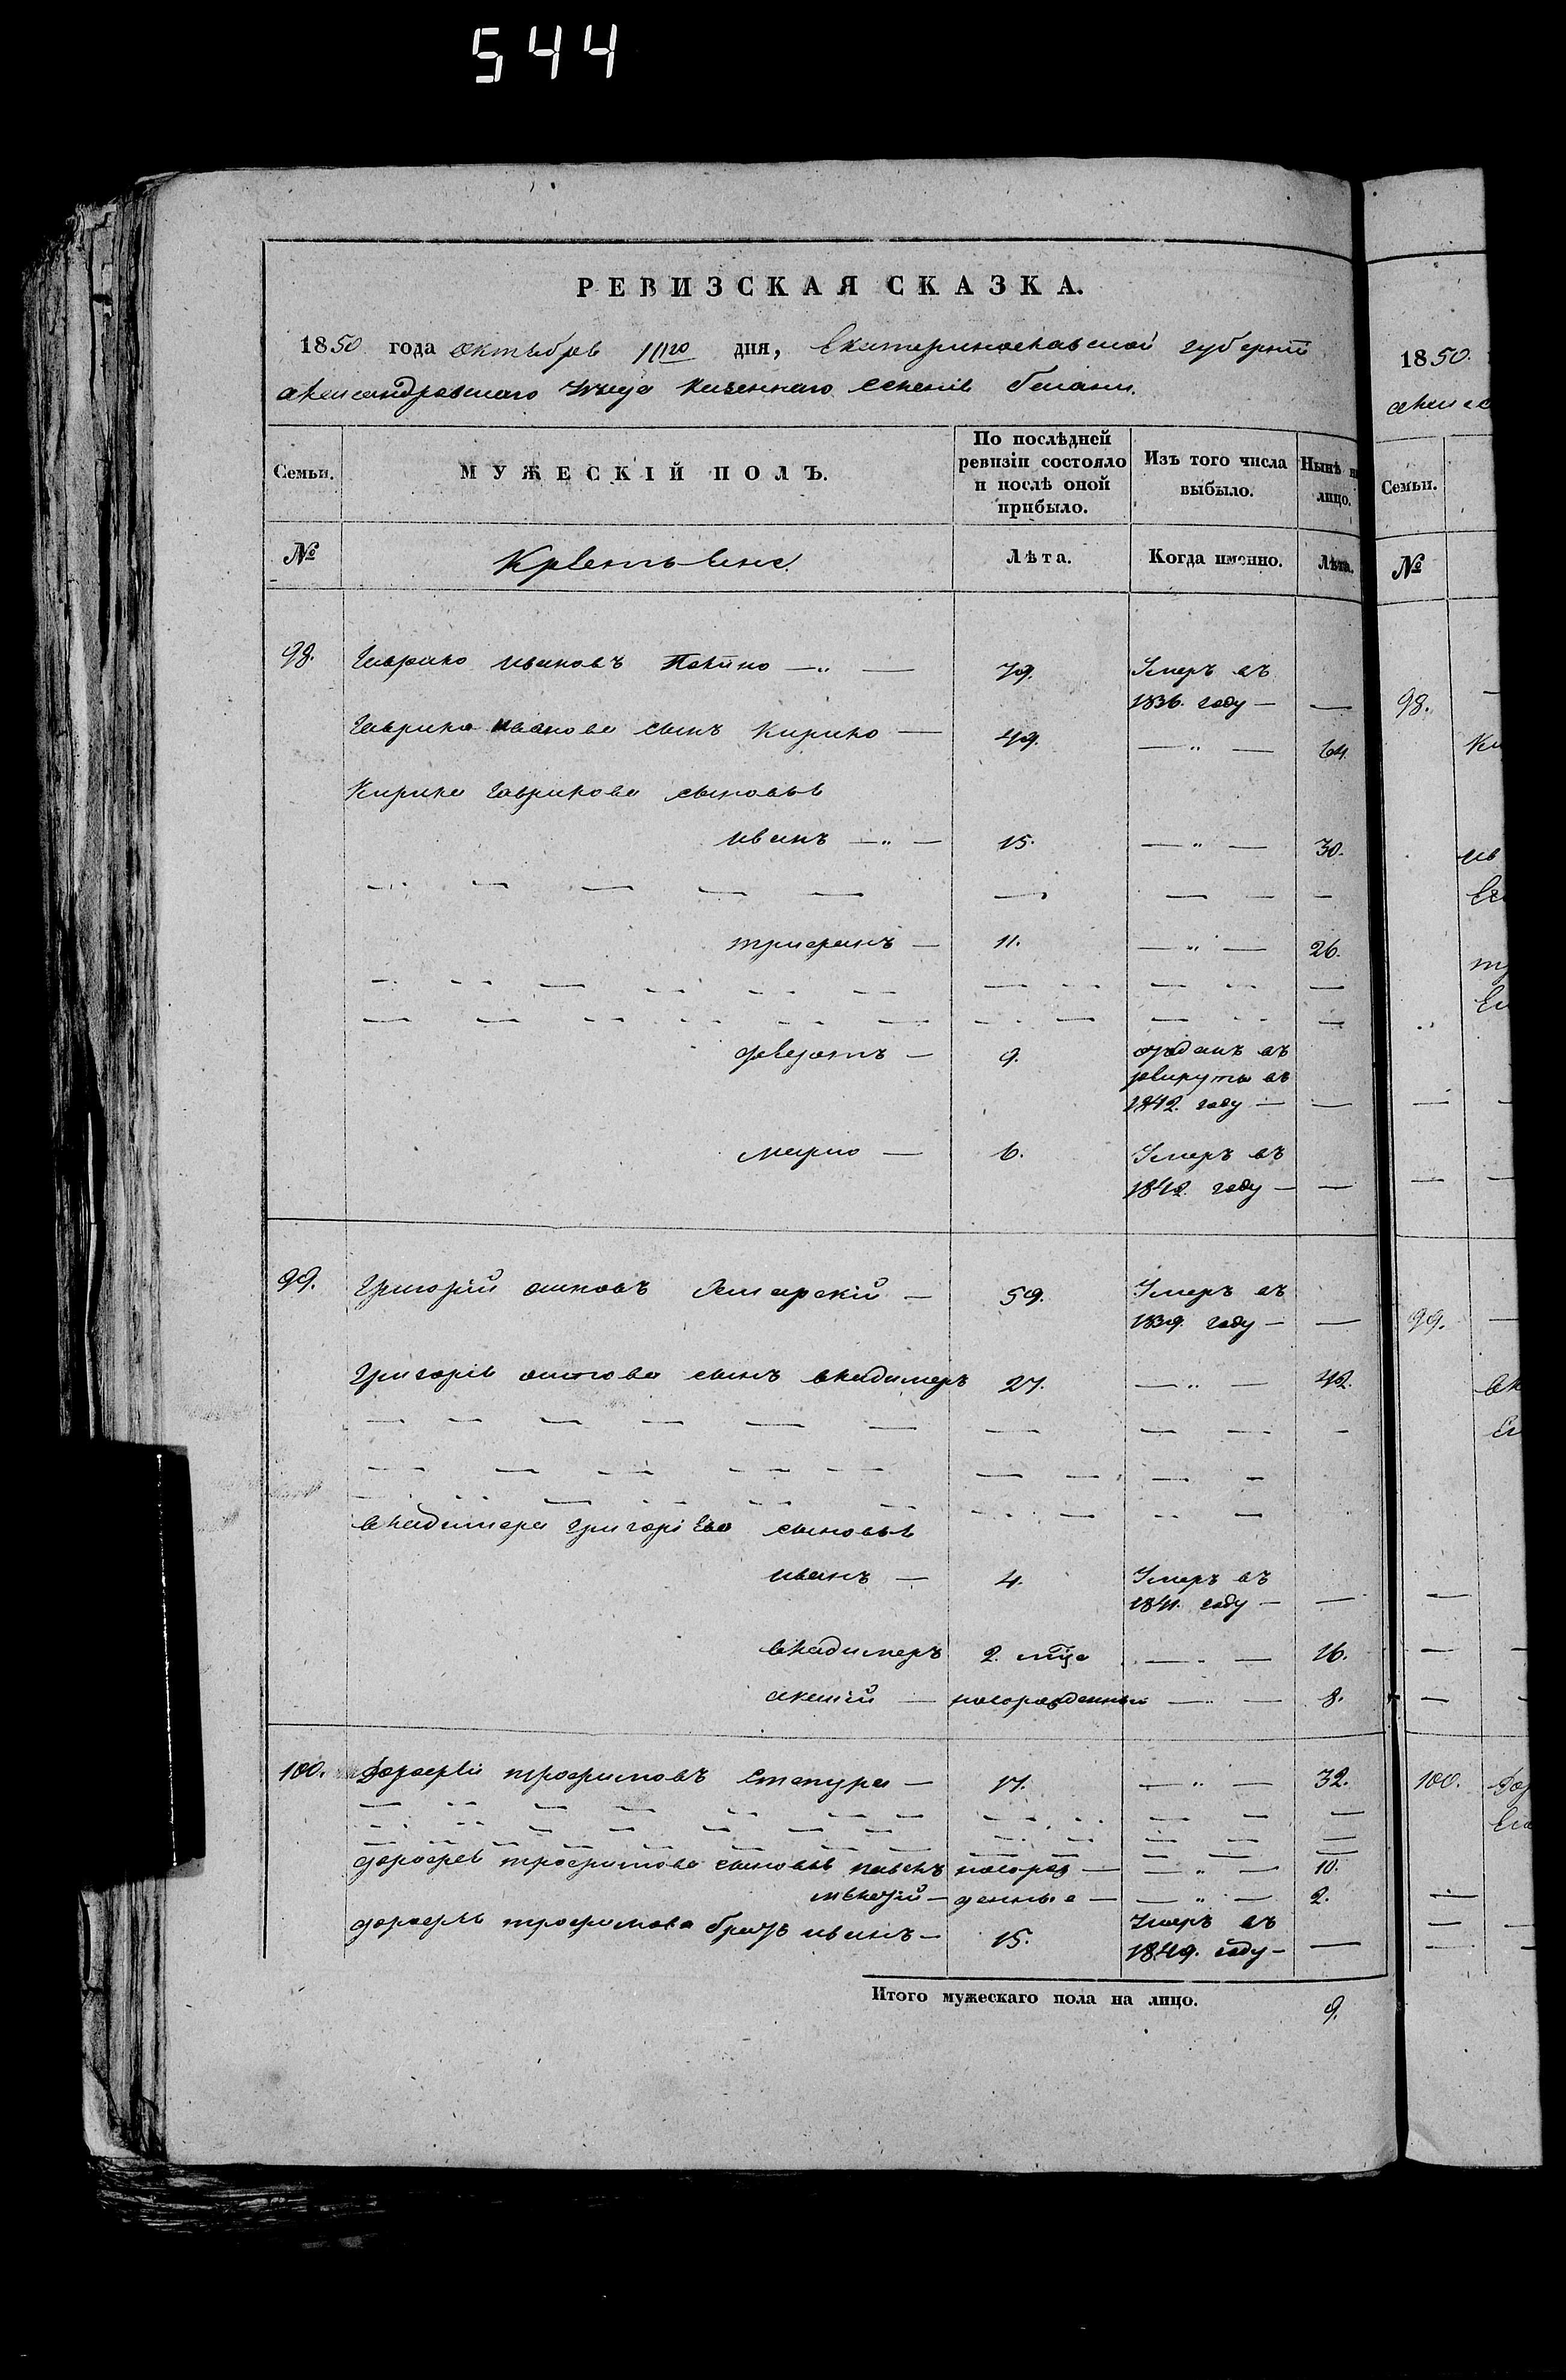 544
РЕВИЗСКАЯ СКАЗКА.
1850 года октября 11го дня, Екатеринославской губернiи
Александровскаго уезда казеннаго селенiя
Семьи. МУЖЕСКІЙ ПОЛЪ. По послѣдней ревизіи состояло и послѣ оной прибыло. Изъ того числа выбыло. Нынѣ на лицо.
№ Крестьяне Лѣта. Когда именно. Лѣта.
98. Гаврило Ивановъ 79. Умеръ въ
1836. году — —
Гаврила Иванова сынъ Кирило — 49. — " — 64.
Кирила Гаврилова сыновья
Иванъ — " — 15. — " — 30.
Трифанъ — 11. — " — 26.
Федотъ — 9. отданъ въ
рекруты въ
1842. году — —
Марко — 6. Умеръ въ
1842. году — —
99. Григорій — 59. Умеръ въ
1839. году — —
Григорія сынъ Владимеръ 27. — " — 42.
Владимера Григорiева сыновья
Иванъ — 4. Умеръ въ
1841. году — —
Владимеръ 2. мца — " — 16.
новорожденный — " — 8.
100. Дорофей Трофимовъ — 17. — " — 32.
Дорофея Трофимова сыновья Павелъ новорож — — " — 10.
денные — — " — 2.
Дорофея Трофимова братъ Иванъ — 15. Умеръ въ
1849. году — —
Итого мужескаго пола на лицо. 9.
1850.
Семьи.
№
98.
99.
100.